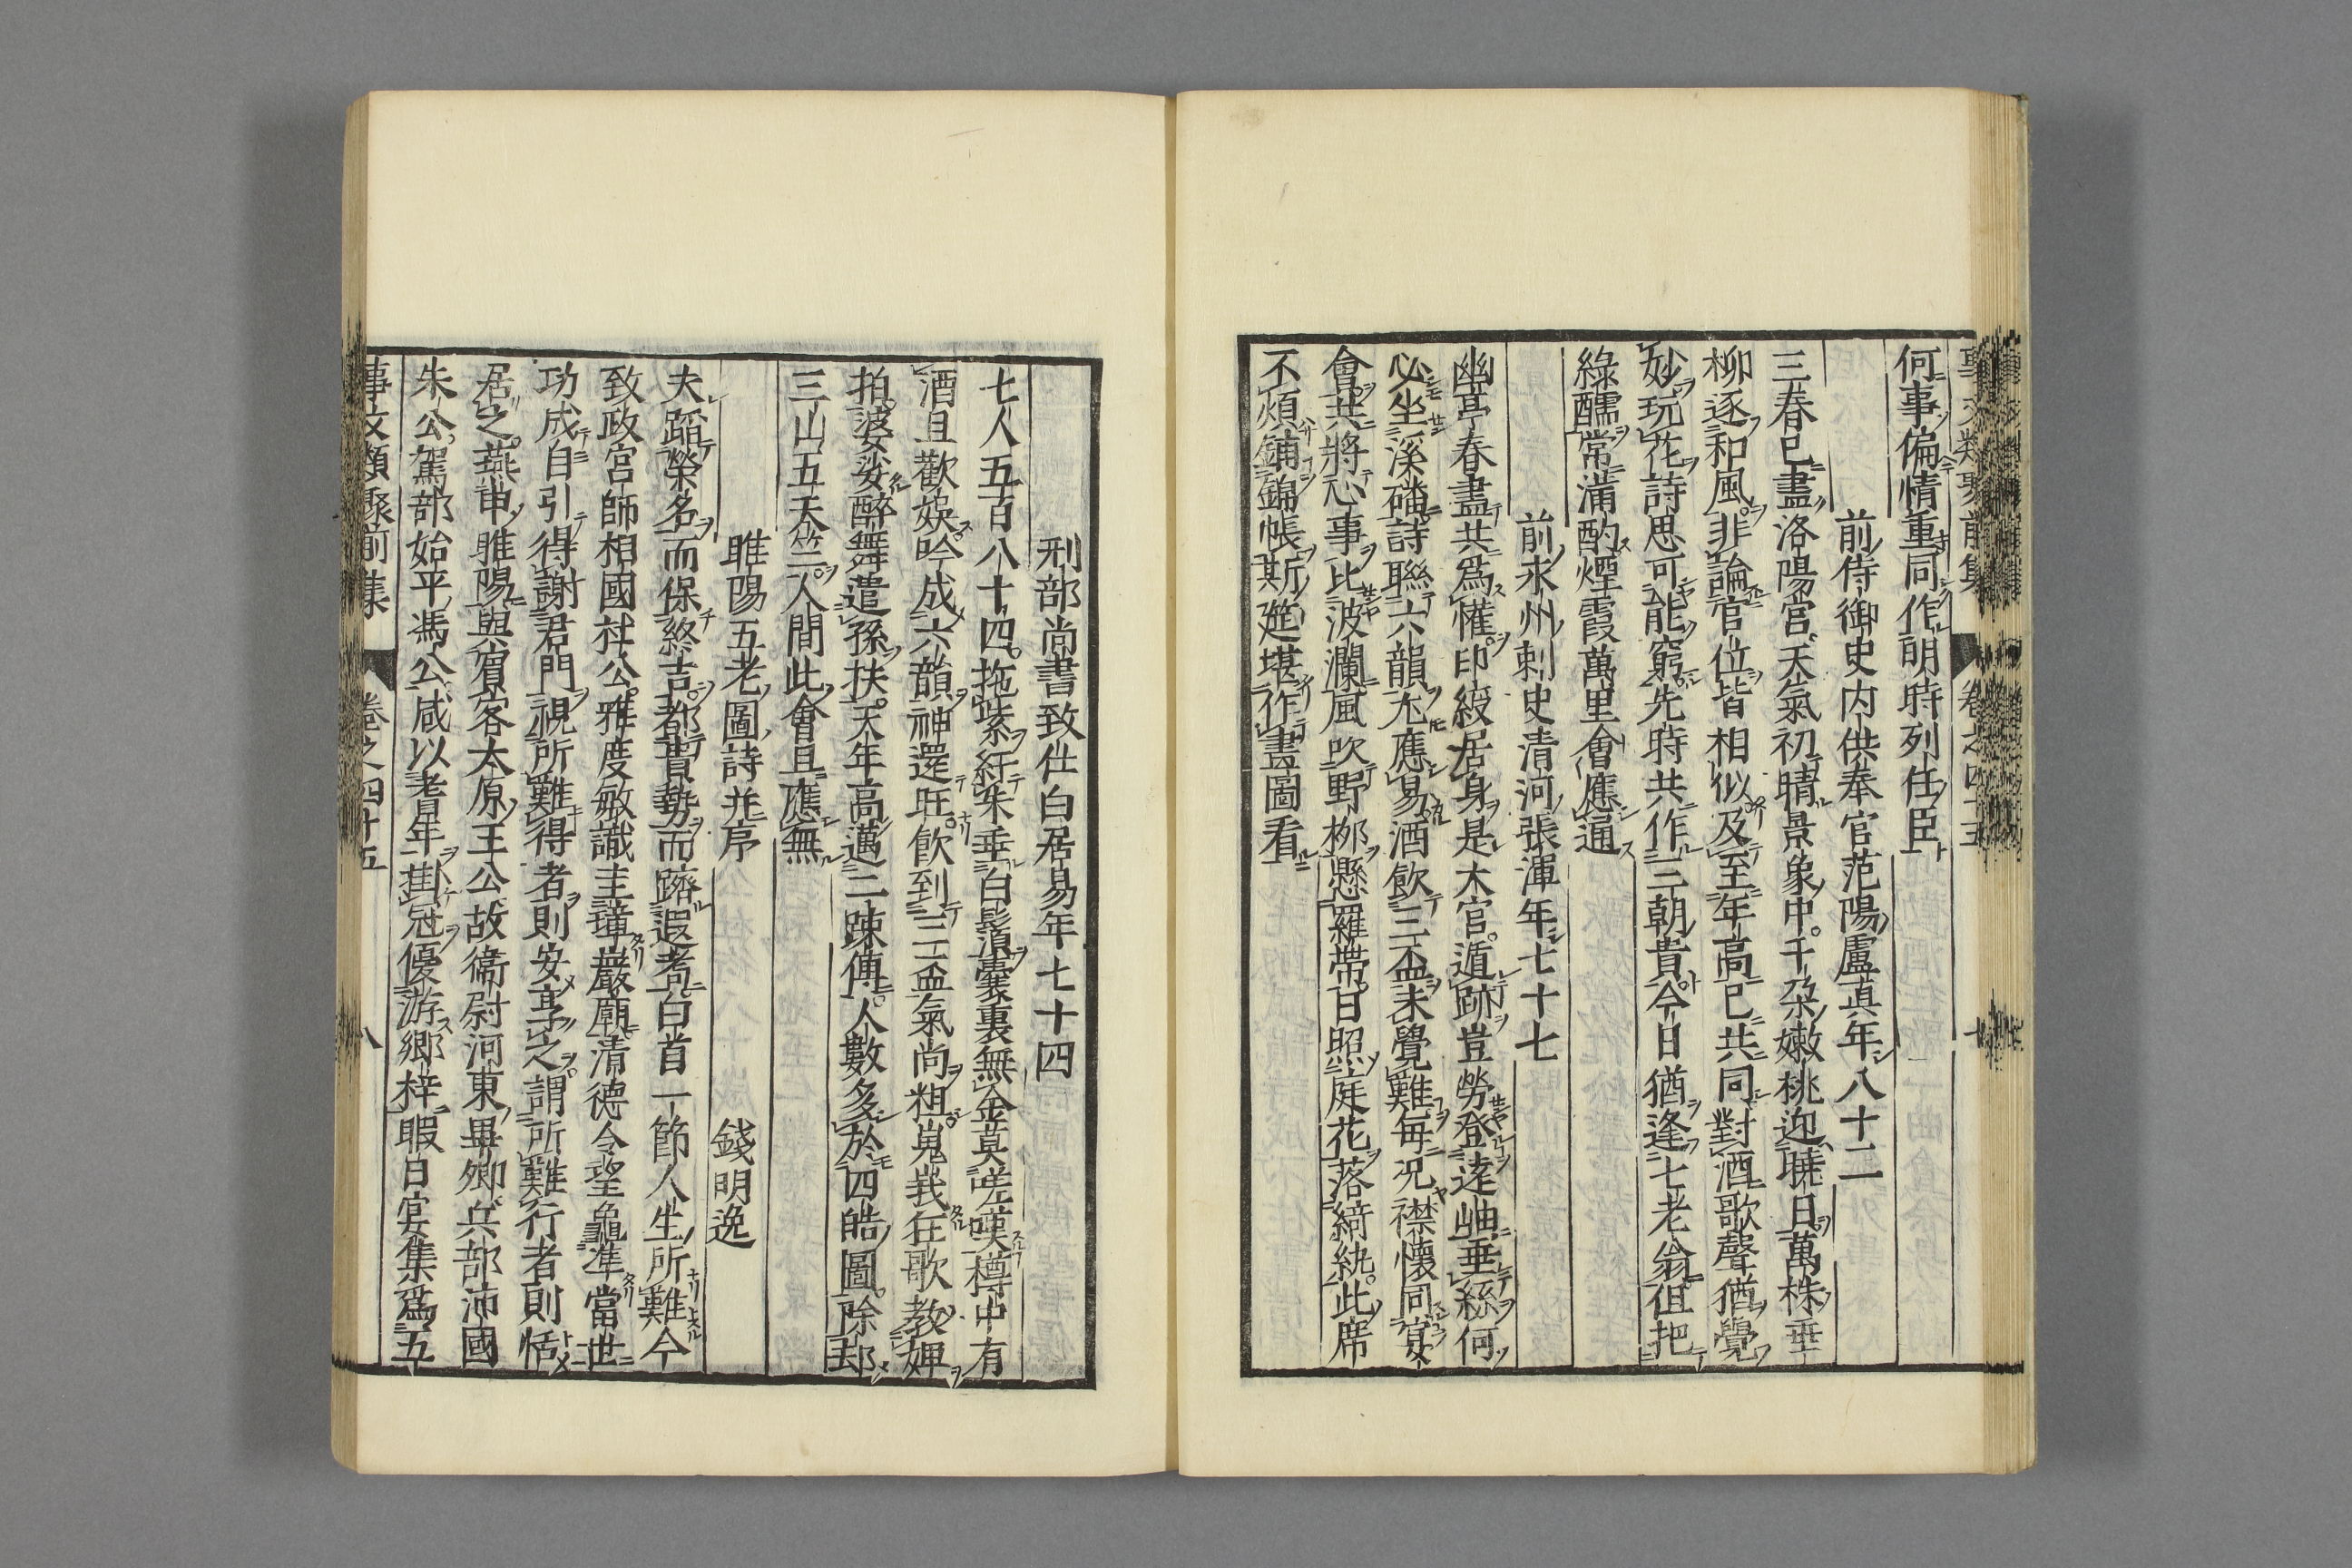 何事偏情重同作明時列任臣
前侍御史内供奉官范陽盧真年八十二
三春已盡洛陽宮天氣初晴景象中千朶嫩桃迎曉日萬株垂
柳逐和風非論官位皆相似及至年高已共同對酒歌聲猶覺
妙玩花詩思可能窮先時共作三朝貴今日猶逢七老翁但把
綠醽常滿酌煙霞萬里會應通
前永州刺史清河張渾年七十七
幽亭春盡共爲懽印綬居身是大官遁跡豈勞登遠岫垂絲何
必坐溪磻詩聯六韻尤應易酒飲三盃未覺難每況襟懷同宴
會共將心事比波瀾風吹野柳懸羅帶日照庭花落綺紈此席
不煩鋪錦帳斯筵堪作畫圖看
刑部尚書致仕白居易年七十四
七人五百八十四拖紫紆朱垂白鬚囊裏無金莫嗟嘆樽中有
酒且歡娛吟成六韻神還旺飲到三盃氣尚粗嵬峩狂歌教婢
拍婆娑醉舞遣孫扶天年高邁二踈傅人數多於四皓圖除却
三山五天竺人間此會且應無
睢陽五老圖詩并序
錢明逸
夫蹈榮名而保終吉都貴勢而躋遐耇白首一節人生所難今
致政宮師相國社公雅度敏識圭璋巖廟清德令望龜準當世
功成自引得謝君門視所難得者則安享之謂所難行者則恬
居之燕申睢陽與賓客太原王公故衛尉河東畢卿兵部沛國
朱公駕部始平馮公咸以耆年掛冠優游鄉梓暇日宴集爲五
事文類聚前集
卷之四十五
八